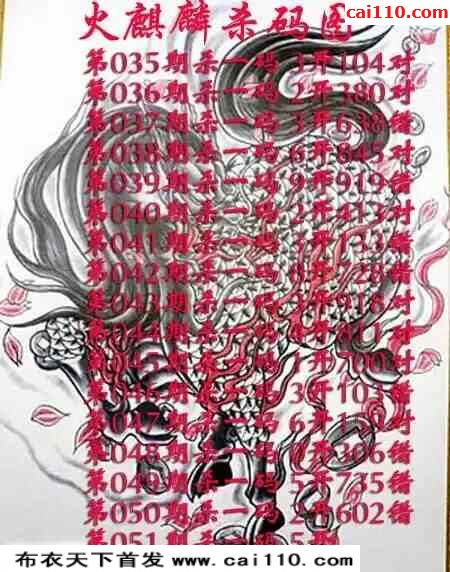 cai110.com
火麒麟杀码图
第035期杀一码 3开104对
第036期杀一码 2开380对
第037期杀一码 3开638错
第038期杀一码 6开845对
第039期杀一码 9开919错
第040期杀一码 2开413对
第041期杀一码 开733错
第042期杀一码 开728错
第043期杀一码 开918对
第044期杀一码
第045期杀一码 对
第046期杀一码 3开103错
第047期杀一码 6开 对
第048期杀一码 开306错
第049期杀一码 5开735错
第050期杀一码 2开602错
第051期杀一码 5开
布衣天下首发 www.cai110.com